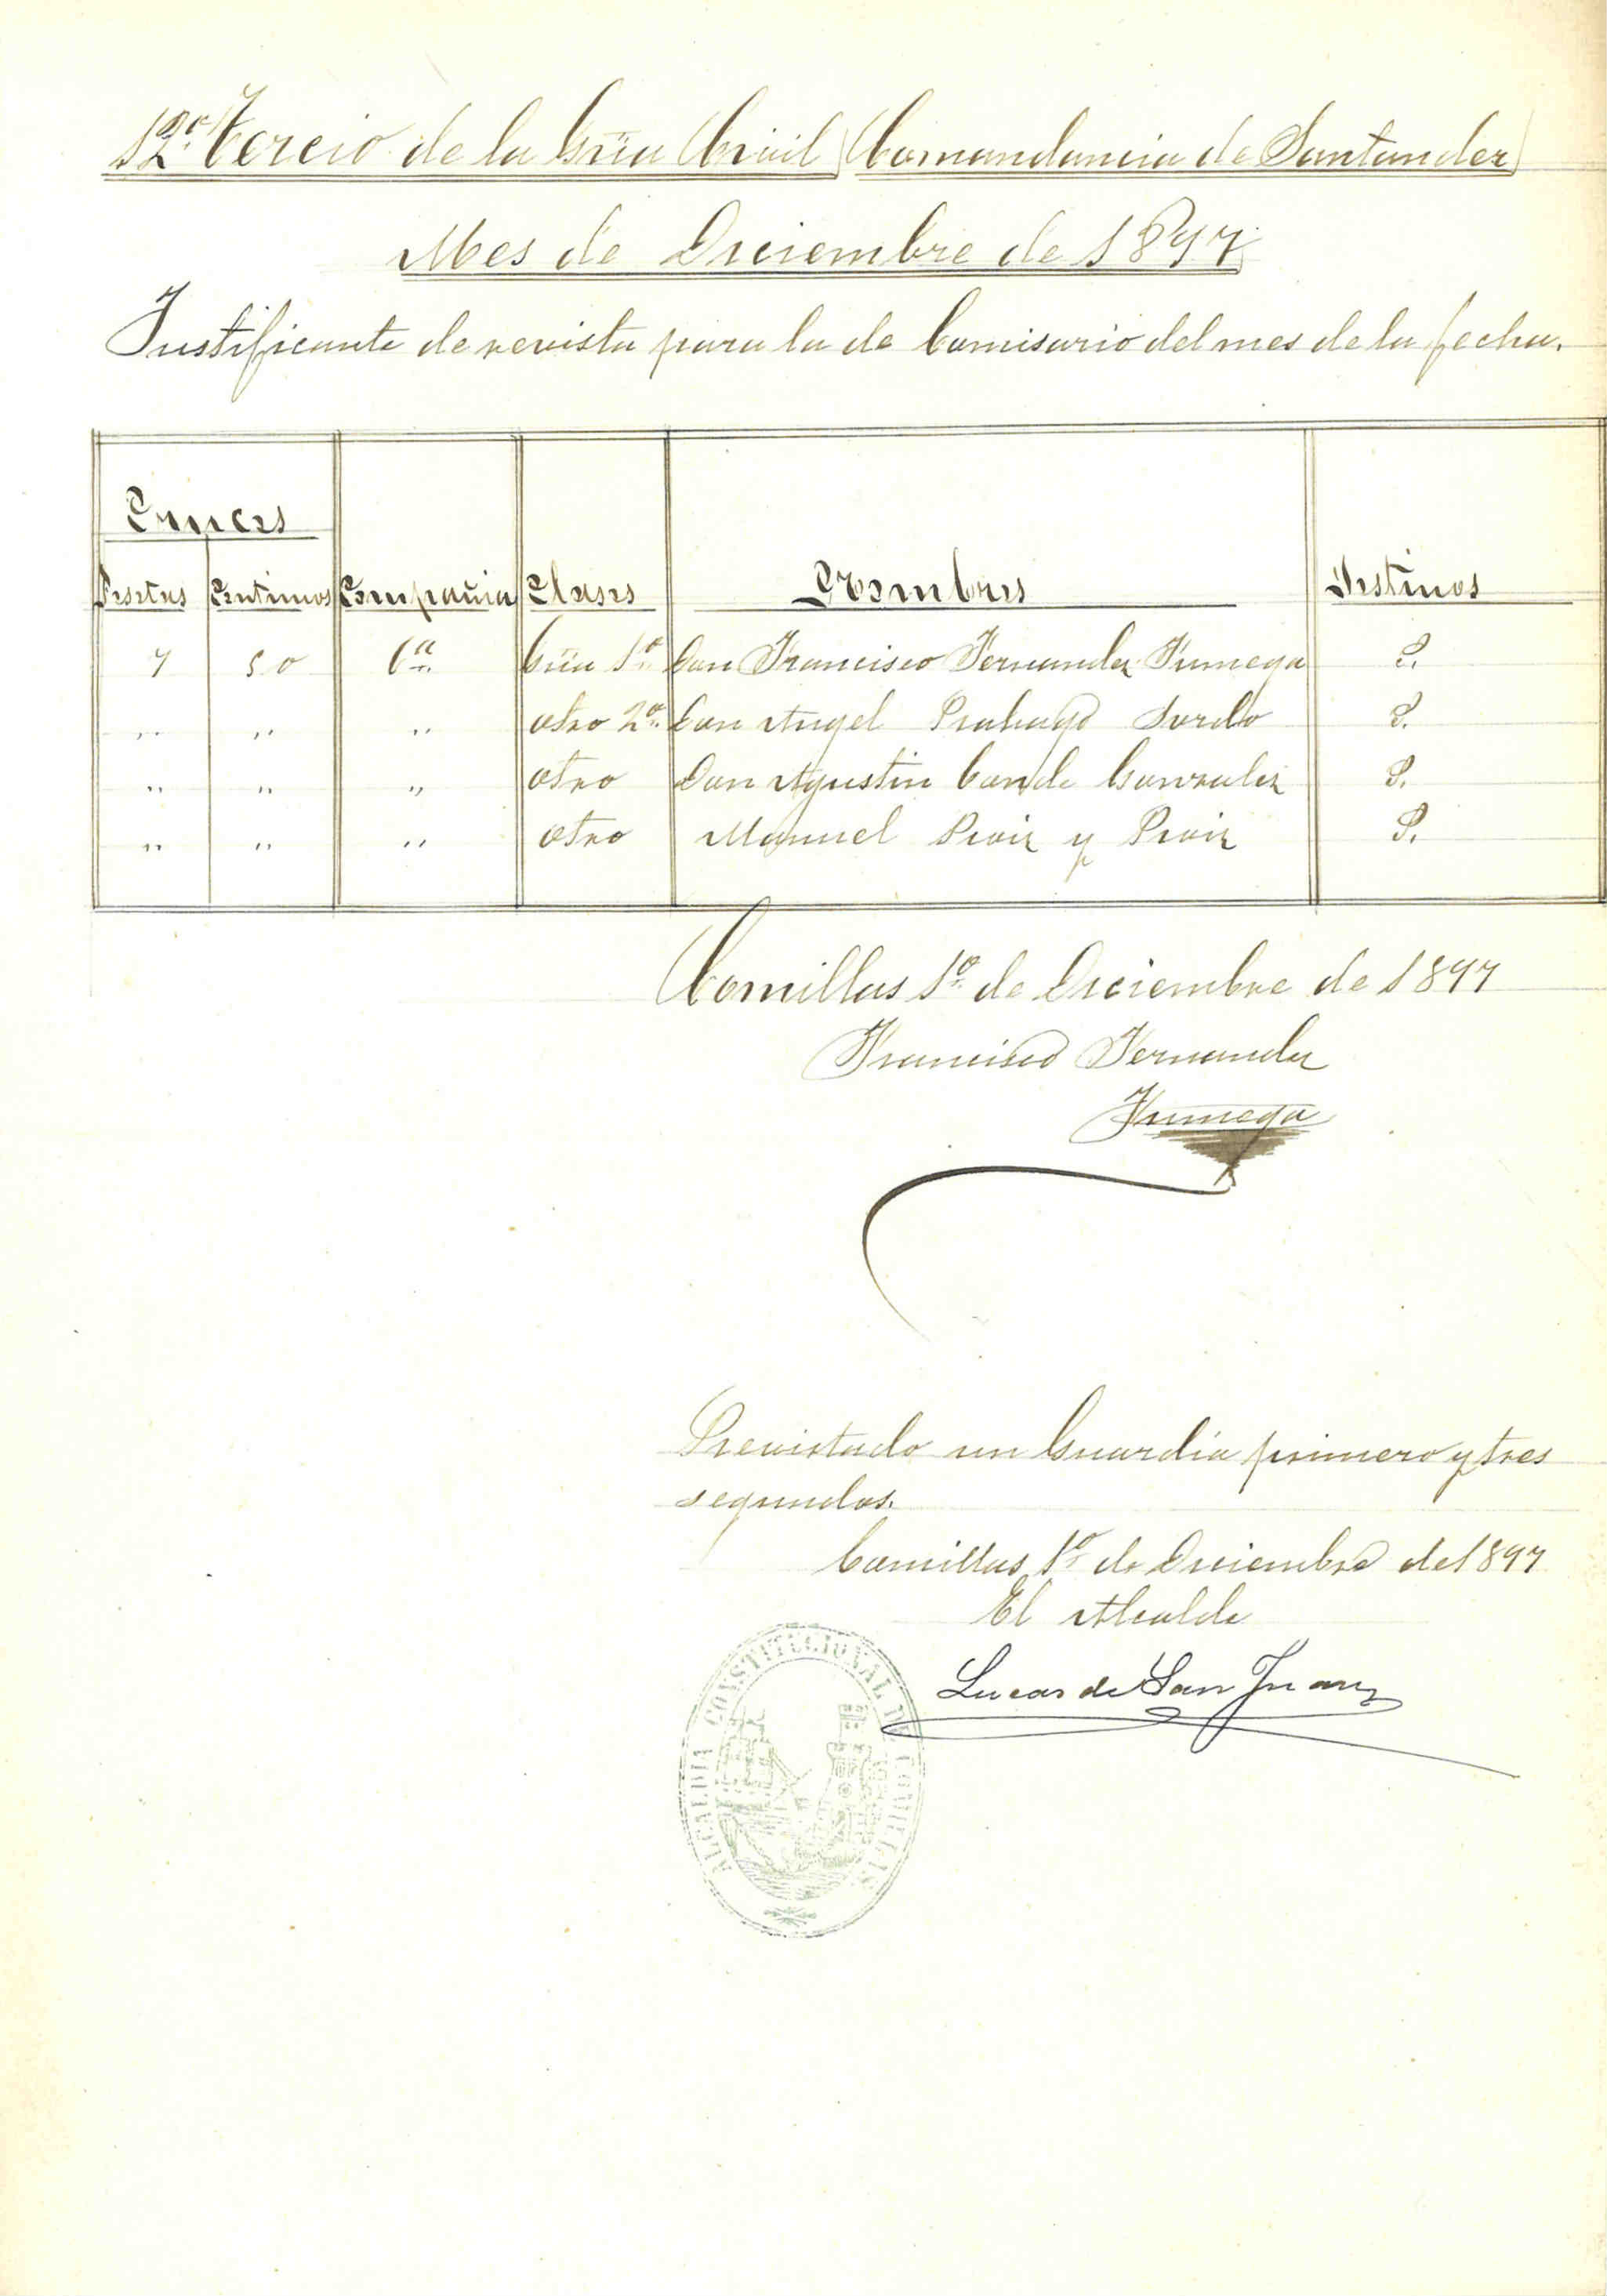 12º Tercio de la Gúia Civil Comandancia de Santander
Mes de Diciembre de 1897
Justificante de revista para la de Comisario del mes de la fecha.
Pesetas Centimos Compañia Clases Nombres Destinos
7 50 6ª Gúia 1º Don Francisco Fernandez Fumega P.
" " " otro 2º Don Angel Sordo P.
" " " otro Don Agustin Conde Gonzalez P.
" " " otro Manuel Ruiz y Ruiz P.
Comillas 1º de Diciembre de 1897
Francisco Fernandez
Fumega
Revistado un Guardia primero y tres
segundos.
Comillas 1º de Diciembre de 1897
El Alcalde
Lucas de San Juan
ALCALDIA CONSTITUCIONAL DE COMILLAS